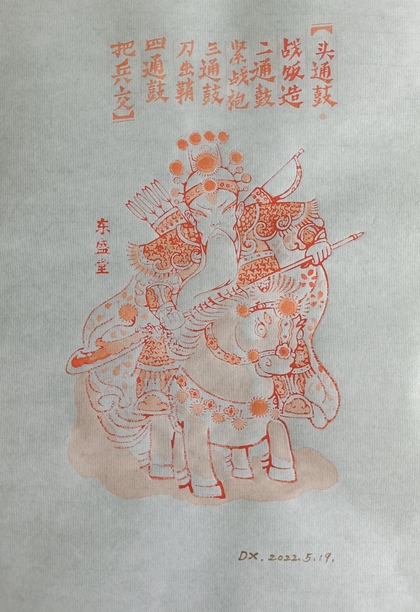 【头通鼓。
战饭造
二通鼓
紧战袍
三通鼓
刀出鞘
四通鼓
把兵交】
东盛堂
DX.2022.5.19.